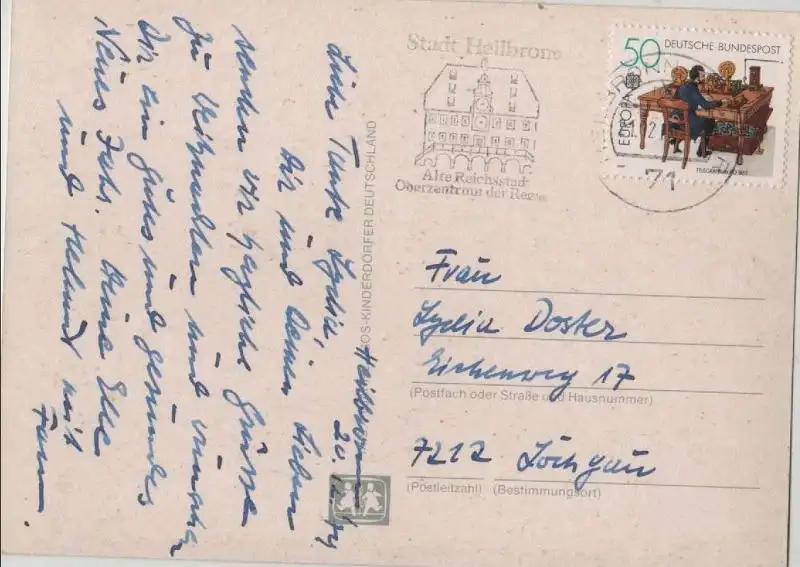 Heilbronn
20.12.
Liebe Tante Lydia,
Dir und Deinen Lieben
senden wir herzliche Grüße
zu Weihnachten und wünschen
Dir ein gutes und gesundes
Neues Jahr. Deine Elke
und Helmut mit
Fam.
SOS-KINDERDÖRFER DEUTSCHLAND
Stadt Heilbronn
Alte Reichsstadt
Oberzentrum der Region
50 DEUTSCHE BUNDESPOST
EUROPA
71
Frau
Lydia Doster
Eichenweg 17
(Postfach oder Straße und Hausnummer)
7212 Löchgau
(Postleitzahl) (Bestimmungsort)